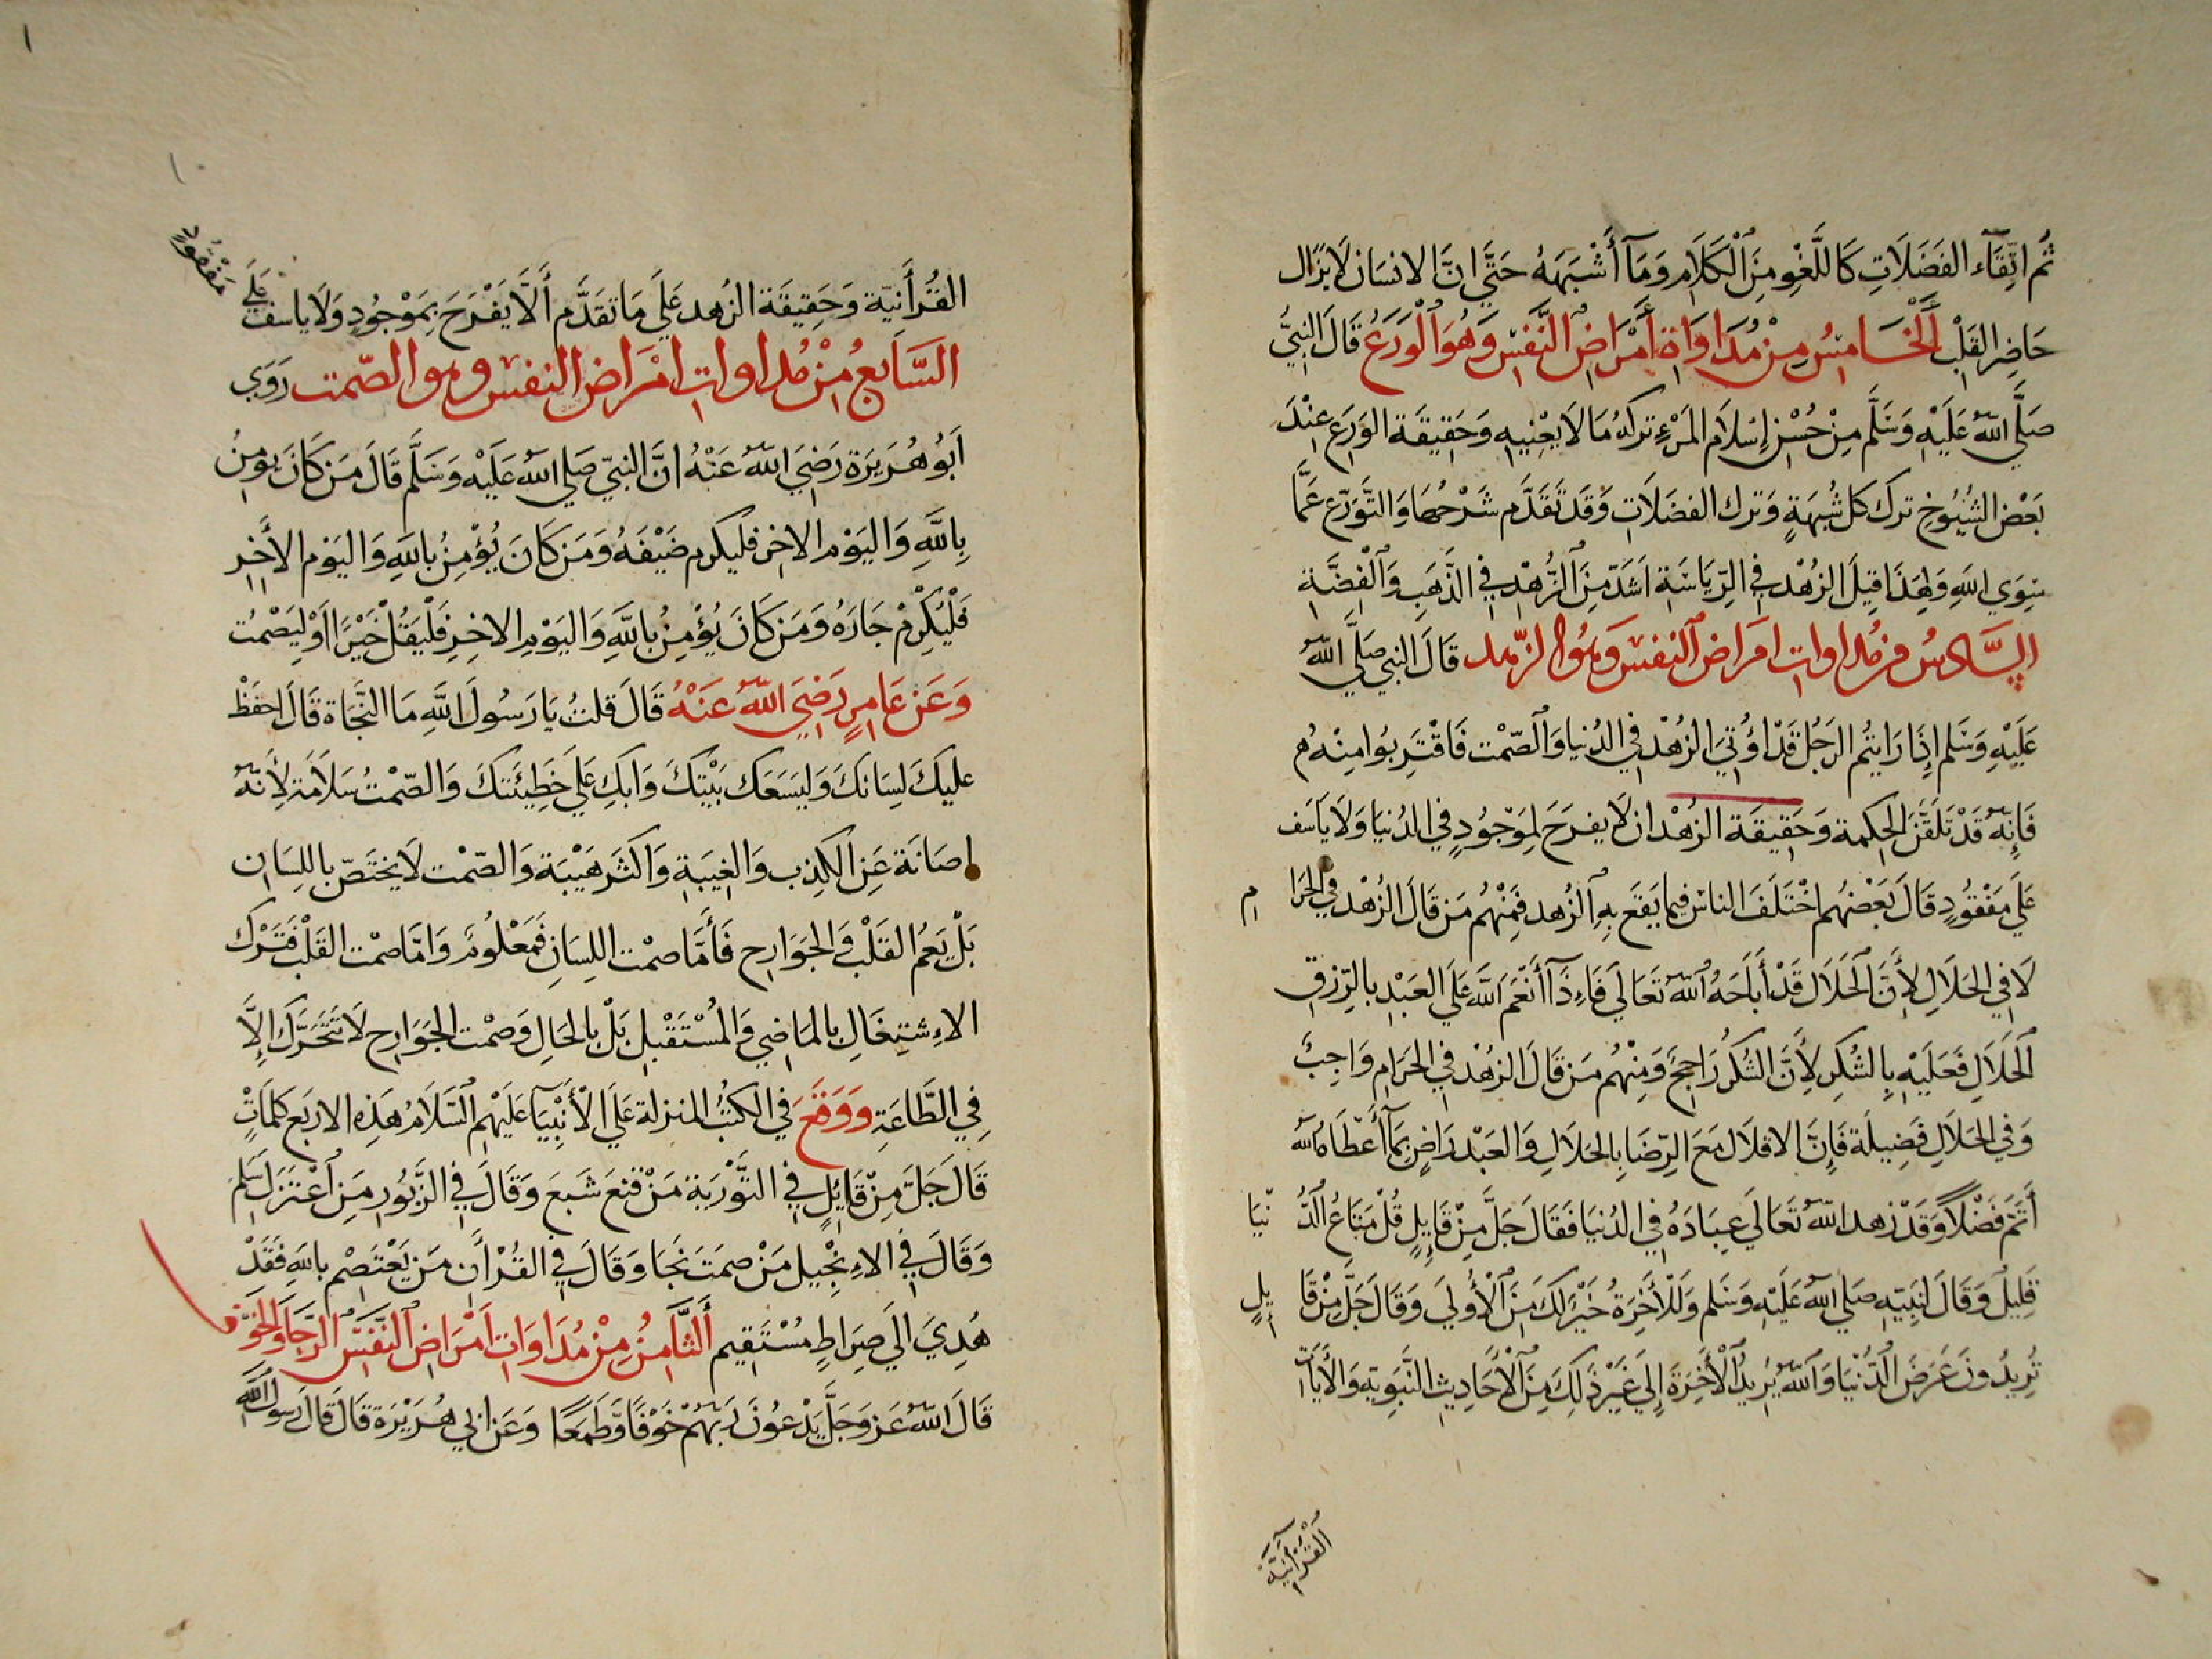 ثُم اتِّقَآء الفَضَلَاتِ كَاللَّغْوِ مِنَ ٱلْكَلَامِ وَمَآ أَشْبَهَهُ حَتَّي انَّ الانسَان لَا يَزَال
حَاضِر القَلْبِ ٱلْخَامِسُ مِنْ مُدَاوَاةِ أَمْرَاضِ النَّفْسِ وَهُوَ ٱلْوَرَعُ قَالَ النَّبِيُّ
صَلَّي اللّهُ عَلَيْهِ وَسَلَّم مِنْ حُسْنِ إِسْلَام المَرْءِ تركُهُ مَا لَا يَعْنِيهِ وَحَقِيقَة الوَرَع عِنْدَ
بَعْض الشُيُوخ ترك كل شُبهَةٍ وَترك الفضَلَاتِ وَقَد تَقَدَّم شَرْحُهَا وَالتَّوَرّع عَمَّا
سِوَي اللهِ وَلِهَذَا قِيلَ الزهْد في الرِّيَاسَةِ اَشَدّ مِنَ ٱلزُّهْدِ في الذَّهَبِ وَٱلْفِضَّةِ
السَّادسُ من مُداوات امرَاض ٱلنفس وَهُوَ الزّهد قَالَ النبي صَلَّي اللّهُ
عَلَيْهِ وَسَلم إِذَا رَايتُم الرَجُل قَدْ اوُتيَ الزهْد في الدُنيا وَٱلصّمْت فَاقْتَرِبُوا مِنْهُ م
فَإِنهُ قَدْ تَلَقَّنَ الحِكمة وَحَقِيقَة الزهْد ان لَا يفرَحَ لِمَوْجُودٍ في الدُنيَا وَلَا يَاسَف
عَلَي مَفْقُودٍ قَالَ بَعْضُهُم اخْتَلَفَ الناسُ فيما يَقَع بِهِ ٱلزهد فَمِنْهُم مَن قَالَ الزُهْد في الحَرَا م
لَا في الحَلَالِ لِأَنَّ ٱلحَلَالَ قَدْ أَبَاحَهُ ٱللّهُ تَعَالَي فَاءِذَآ أَنْعَمَ اللَّه عَلَي العَبْدِ بالرِّزق
ٱلحَلَالِ فَعَلَيْهِ بِالشُكرِ لِأَنَّ الشُكرَ رَاجِحٌ وَمِنْهُم مَن قَالَ الزهْد في الحَرَام وَاجِبٌ
وَفي الحَلَالِ فَضِيلَة فَإِنَّ الاقلَال مَعَ الرِّضَا بِالحَلَالِ وَالعَبْد رَاضٍ بِمَآ أَعْطَاهُ الله
أَتَمّ فَضْلًا وَقَدْ زهد اللّهُ تَعَالَي عِبَادَهُ في الدُنيَا فَقَالَ جَلَّ مِنْ قَايِلٍ قُلْ مَتَاعُ ٱلدُّ نْيَا
قَلِيلٌ وَقَالَ لِنَبِيّهِ صَلي اللّهُ عَلَيْهِ وَسَلم وَلَلْأَخِرَةُ خَيْرٌ لَكَ مِنَ ٱلْأُولَي وَقَالَ جَلَّ مِنْ قَا يِلٍ
تُرِيدُونَ عَرَضَ ٱلدُّنْيَا وَٱللّهُ يُرِيدُ ٱلْأَخِرَةَ إِلَي غَيْرِ ذَلِكَ مِنَ ٱلْأَحَادِيثِ النَّبَوِيّةِ وَالأَيَاتِ
القُرْأَنِيَّةِ
القُرْأَنِيّة وَحَقِيقَة الزُهد عَلَي مَا تقَدَّم أَلَّا يَفْرَحَ بِمَوْجُودٍ وَلَا ياسف عَلَي مَفْقُودٍ
السَّابعُ مِنْ مُداوات امْرَاض النفس وهو الصّمت رَوَي
أَبُو هُرَيرَة رَضِيَ اللّهُ عَنْهُ انَّ النبيّ صَلي اللهُ عَلَيْهِ وَسَلَّم قَالَ مَن كَانَ يومِنُ
بِاللَّهِ وَاليَوْم الاخِر فليكرم ضَيْفَهُ وَمَن كَانَ يُؤْمِنُ بِاللَّهِ وَاليَوْم الأَخِرِ
فَلْيُكْرِمْ جَارَهُ وَمَن كَانَ يُؤْمِنُ بِاللَّهِ وَاليَوْمِ الاخِرِ فَلْيَقُلْ خَيْرًا اَوْ لِيَصْمُت
وَعَن عَامِرٍ رَضِيَ اللّهُ عَنْهُ قَالَ قلتُ يَا رَسُولَ اللَّهِ مَا النَّجَاة قَالَ احفَظْ
عليكَ لِسَانكَ وَلْيَسَعَك بَيْتكَ وَابكِ عَلَي خَطِيئَتكَ وَالصّمْتُ سَلَامَة لِأَنّهُ
اصَانَة عَنِ الكَذِب وَالغِيبَةِ وَاكثَر هَيْبَة وَالصّمْت لَا يَختَصّ باللِسَان
بَلْ يَعُم القَلْب وَالجَوَارِح فَأَمَّا صمْت اللِسَانِ فَمَعْلُومٌ وَامَّا صمْت القَلْب فَتَرْك
الاءِشتِغَالِ بالمَاضِي وَالمُسْتَقْبلِ بَلْ بالحَالِ وَصمْت الجَوَارِح لَا تَتَحَرَّكُ إِلَّا
في الطَّاعَةِ وَوَقَعَ في الكتُبُ المنزلة عَلَي الأَنْبِيَآ عَلَيْهِم السَّلَامُ هَذِه الاربَع كلمَاتٍ
قَالَ جَلَّ مِنْ قَائِلٍ في التَّوْرَيةِ مَنْ قنعَ شَبعَ وَقَالَ في الزَّبُورِ مَنِ ٱعْتَزَلَ سَلِمَ
وَقَالَ في الاءِنْجِيل مَنْ صَمَتَ نَجَا وَقَالَ في القُرْأَنِ مَن يَعْتَصِم باللهِ فَقَدْ
هُدِيَ الَي صِرَاطٍ مُسْتَقِيم أَلثَّامِنُ مِنْ مُدَاوَاتِ اَمْرَاضِ ٱلنَّفْسِ ٱلرَّجَا وَالخَوْف
قَالَ اللّهُ عَزّ وَجَلَّ يَدْعُونَ رَبَهُمْ خَوْفًا وَّطَمَعًا وَعَن ابي هُرَيْرَة قَالَ قَالَ رَسولُ اللَّهِ